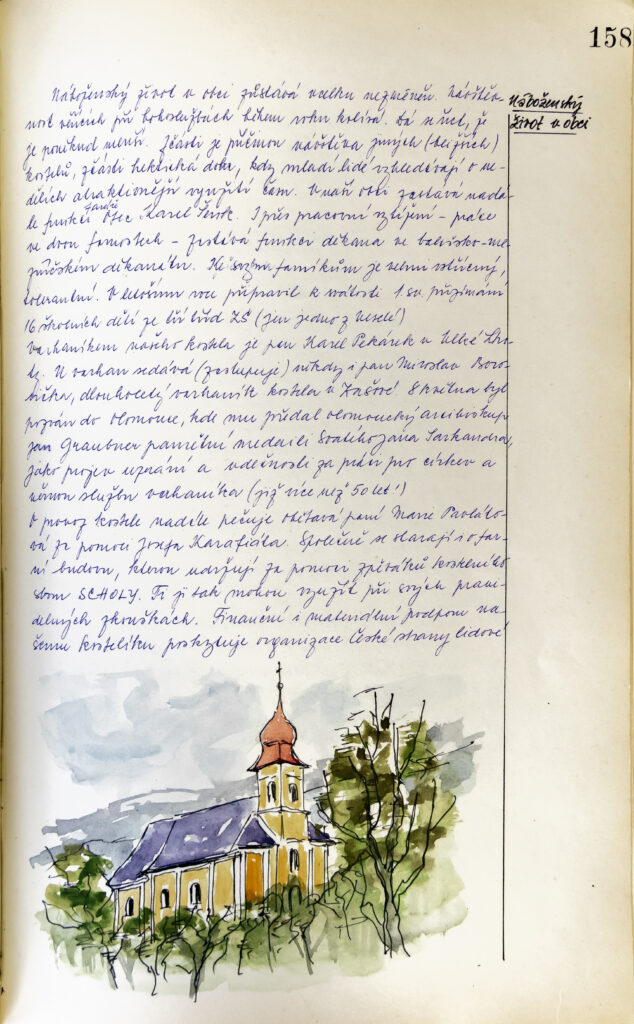 158
Náboženský
život v obci
Náboženský život v obci zůstává vcelku nezměněn. Návštěv-
nost věřících při bohoslužbách během roku kolísá. Dá se říct, že
je poněkud menší. Zčásti je příčinou návštěva jiných (bližších)
kostelů, zčásti hektická doba, kdy mladí lidé vyhledávají o ne-
dělích atraktivnější využití času. V naší obci zastává nadá-
le funkci faráře Otec Karel. I přes pracovní vytížení – práce
ve dvou farnostech – zastává funkci děkana ve valašsko-me-
ziříčském děkanátu. Ke svým farníkům je velmi vstřícný,
tolerantní. V letošním roce připravil k svátosti 1. sv. přijímání
16 školních dětí ze tříd ZŠ (jen jedno z Veselé)
Varhaníkem našeho kostela je pan Karel Pekárek z Velké Lho-
ty. U varhan sedává (zastupuje) někdy i pan Miroslav Boro-
vička, dlouholetý varhaník kostela v Zašové. 8. května byl
pozván do Olomouce, kde mu předal olomoucký arcibiskup
Jan Graubner pamětní medaili Svatého Jana Sarkandra,
jako projev uznání a vděčnosti za práci pro církev a
věrnou službu varhaníka (již více než 50 let!)
O provoz kostela nadále pečuje obětavá paní Marie Pavláto-
vá za pomoci Josefa Karafiáta. Společně se starají i o far-
ní budovu, kterou udržují za pomoci zpěváků kostelního
sboru SCHOLY. Ti ji tak mohou využít při svých pravi-
delných zkouškách. Finanční i materiální podporu na-
šemu kostelíku poskytuje organizace České strany lidové